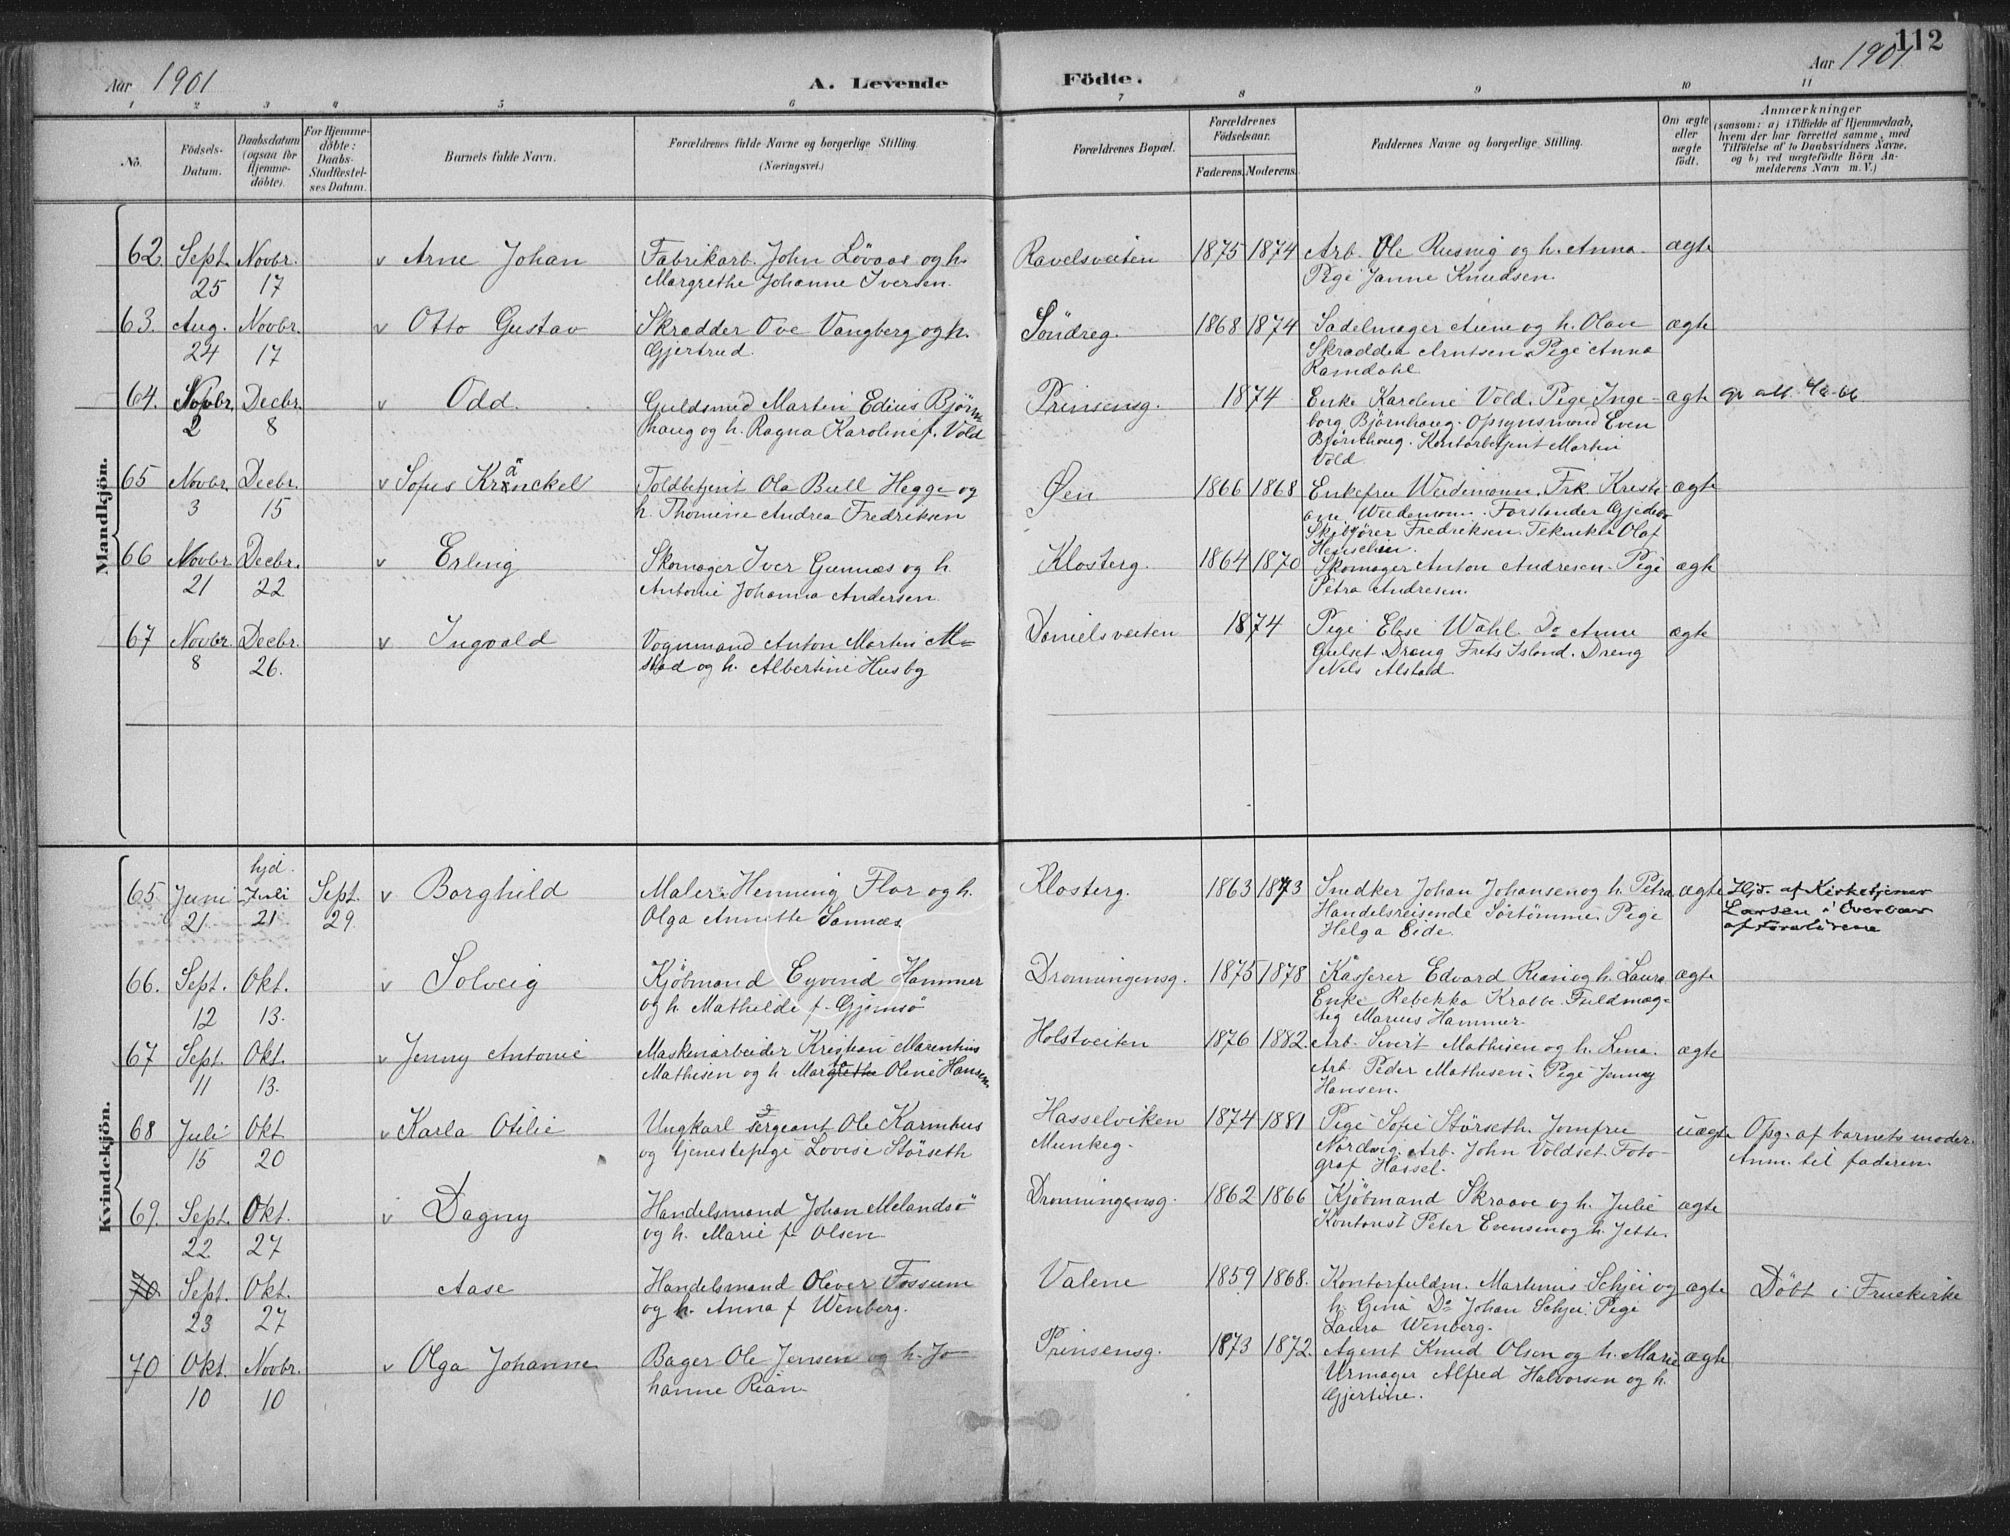 112
Aar 1901
A. Levende
Födte.
Aar 1901
1 2 3 4 5 6 7 8 9 10 11
No.
Födsels-Datum.
Daabsdatum (ogsaa for Hjemme-döbte).
For Hjemme-döbte: Daabs-Stadfæstel-ses Datum.
Barnets fulde Navn.
Forældrenes fulde Navne og borgerlige Stilling.
(Næringsvei.)
Forældrenes Bopæl.
Forældrenes Födselsaar.
Faderens. Moderens.
Faddernes Navne og borgerlige Stilling.
Om ægte eller uægte födt.
Anmærkninger
(saasom: a) i Tilfælde af Hjemmedaab,
hvem der har forrettet samme, med
Tilföielse af to Daabsvidners Navne,
og b) ved uægtefödte Börn An-
melderens Navn m. V.)
Mandkjön.
62. Sept. 25 Novbr. 17 v Arne Johan
Fabrikarb. John Lövaas og h.
Margrethe Johanne Iversen.
Ravelsveiten 1875 1874
Arb. Ole Rusnig og h. Anna.
Pige Janne Knudsen.
ægte
63. Aug. 24 Novbr. 17 v Otto Gustav
Skrædder Ove Vangberg og h.
Gjertrud.
Söndreg. 1868 1874
Sadelmager Arne og h. Olave
Skrædder Arntsen. Pige Anna
Ramdahl
ægte
64. Novbr. 2 Decbr. 8 v Odd.
Guldsmed Martin Edius Björn-
haug og h. Ragna Karoline f. Vold
Prinsensg. 1874
Enke Karoline Vold. Pige Inge-
borg Björnhaug. Opsynsmand Even
Björnhaug. Kontorbetjent Martin
Vold
ægte
65 Novbr. 3 Decbr. 15 v Sofus Kränckel
Toldbetjent Ola Bull Hegge og
h. Thomine Andrea Fredriksen
Øen 1866 1868
Enkefru Weidemann. Frk. Kristi
ane Weidemann. Forstander Gjedebo
Skibsförer Fredriksen. Tekniker Olaf
Henschien.
ægte
66 Novbr. 21 Decbr. 22 v Erling
Skomager Iver Gunnæs og h.
Antonie Johanna Andersen
Klosterg. 1864 1870
Skomager Anton Andresen. Pige
Petra Andresen.
ægte
67 Novbr. 8 Decbr. 26. v Ingvald
Vognmand Anton Martin Al-
stad og h. Albertine Husby
Danielsveiten 1874
Pige Elise Wahl. Do Anne
Gulset. Dreng Frits Island. Dreng
Nils Alstad.
ægte
Kvindekjön.
65 Juni 21 hjd. Juli 21 Sept. 29. v Borghild
Maler Henning Flor og h.
Olga Annette Sannæs.
Klosterg. 1863 1873
Snedker Johan Johansen og h. Petra
Handelsreisende Sörtömme. Pige
Helga Eide.
ægte
Hjd. af Kirketjener
Larsen i Overvær
af Forældrene
66. Sept. 12 Okt. 13. v Solveig
Kjöbmand Eyvind Hammer
og h. Mathilde f. Gjemsö
Dronningensg. 1875 1878
Kasserer Edvard Rian og h. Laura
Enke Rebekka Krabbe. Fuldmæg-
tig Marius Hammer.
ægte
67 Sept. 11 Okt. 13. v Jenny Antonie
Maskinarbeider Kristian Marentius
Mathisen og h. Margrethe Oline Hansen
Holstveiten 1876 1882.
Arb. Sivert Mathisen og h. Lina.
Arb. Peder Mathisen. Pige Jenny
Hansen.
ægte
68 Juli 15 Okt 20 v Karla Otilie
Ungkarl Sergeant Ole Karinhus
og tjenestepige Lovise Störseth
Hasselviken
Munkeg.
1874 1881
Pige Sofie Störseth. Jomfru
Nordvig. Arb. John Voldset. Foto-
graf Hassel.
uægte
Opg. af barnets moder.
Anm. til faderen.
69. Sept. 22 Okt. 27 v Dagny
Handelsmand Johan Melandsö
og h. Marie f. Olsen
Dronningensg. 1862 1866
Kjöbmand Skraave og h. Julie
Kontorist Peter Evensen og h. Jette.
ægte
70 Sept. 23 Okt. 27 Aase
Handelsmand Oliver Fossum
og h. Anna f Wenberg.
Valene 1859 1868.
Kontorfuldm. Martinius Schjei og
h. Gina Do Johan Schjei. Pige
Laura Wenberg.
ægte
Döbt i Fruekirke
70 Okt. 10 Novbr. 10 v Olga Johanne
Bager Ole Jensen og h. Jo-
hanne Rian
Prinsensg. 1873 1872.
Agent Knud Olsen og h. Marie
Urmager Alfred Halvorsen og h.
Gjertine.
ægte